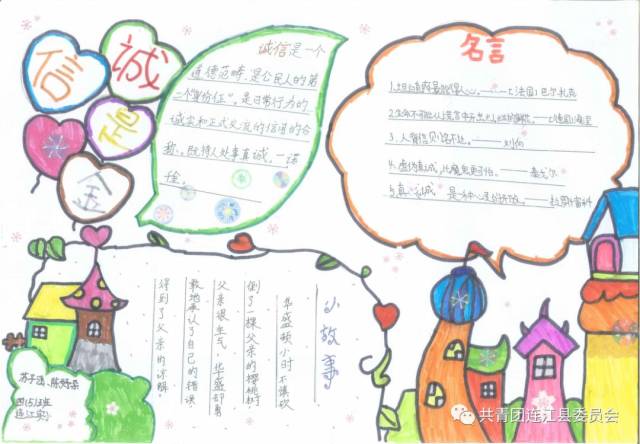 诚
信
金
诚信是一个
道德范畴,是公民人的第
一个“身份证”,是日常行为的
诚实和正式交流的信用的合
称。既待人处事真诚、一诺
名言
1.坦白直率最能得人心。——(法国)巴尔扎克
2.生命不可能从谎言中开出灿烂的鲜花。——(德国)海涅
3.人背信则名不达。——刘向
4.虚伪的真诚,比魔鬼更可怕。——泰戈尔
5.真诚是一种心灵的开放。——拉罗什富科
小故事
华盛顿小时不慎砍
倒了一棵父亲的樱桃树
父亲很生气,华盛顿勇
敢地承认了自己的错误
得到了父亲的谅解。
连江实小
共青团连江县委员会